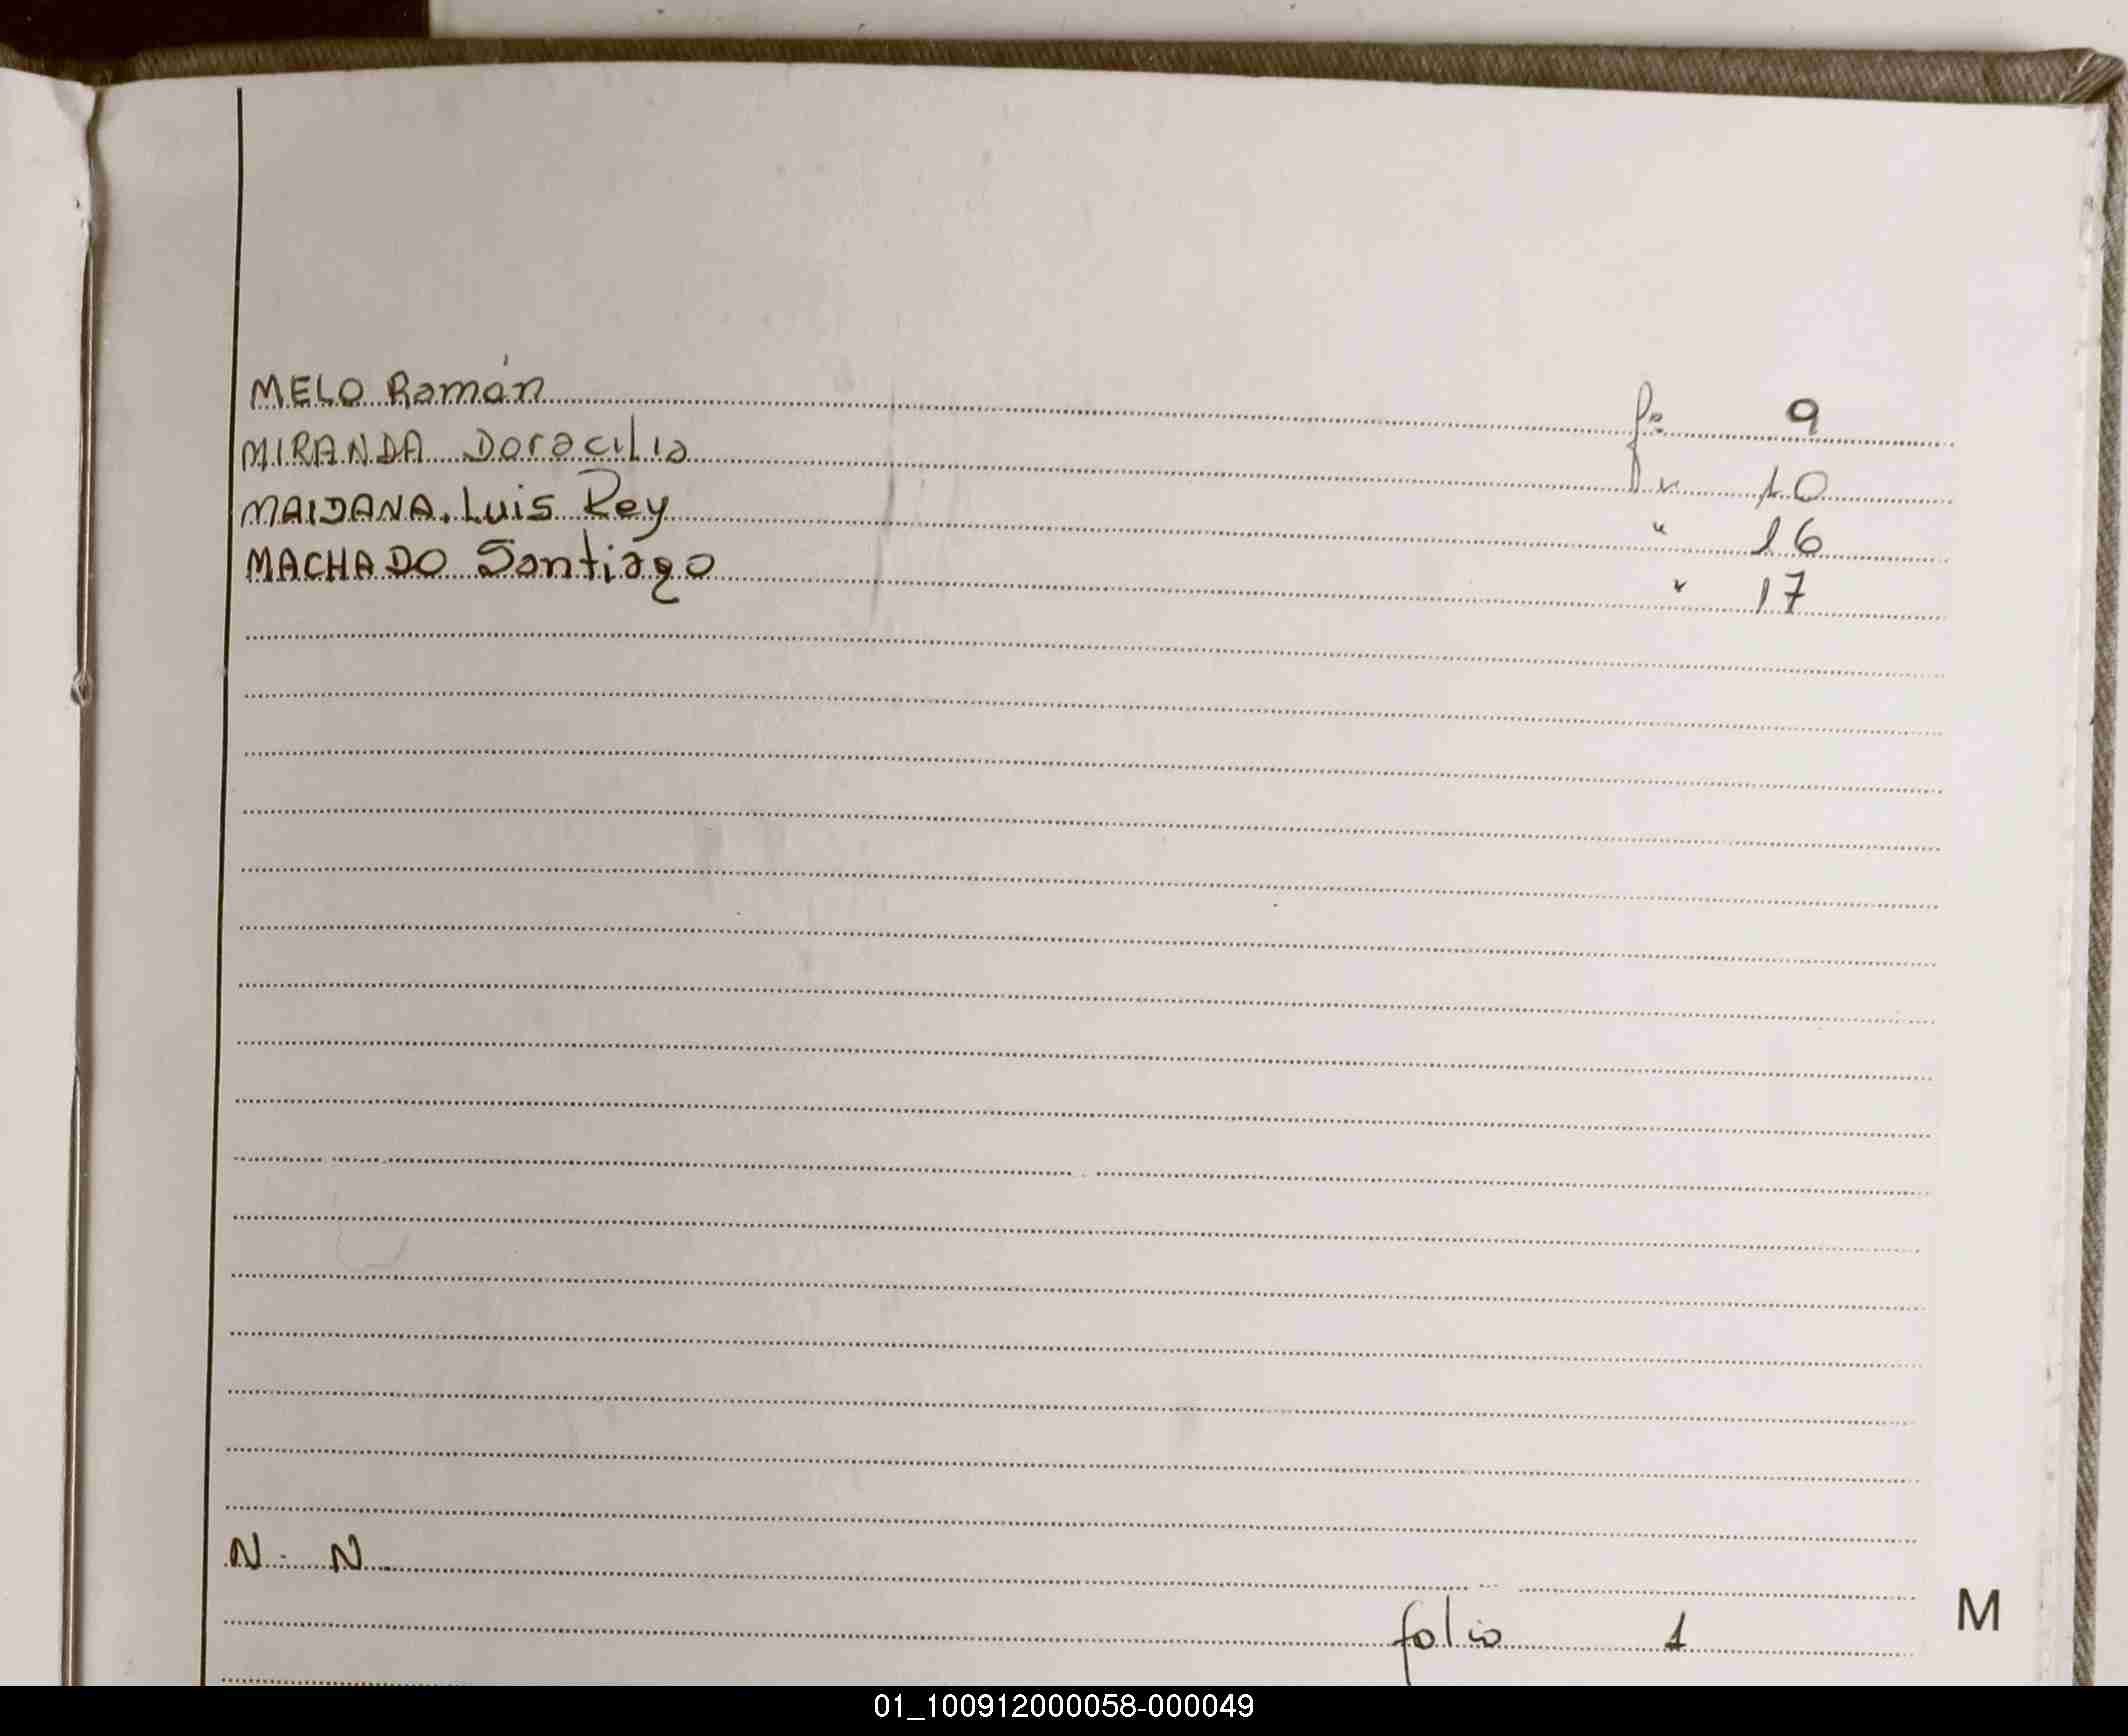 MELO Ramón fo 9
MIRANDA Doracilio " 10
MAIDANA. Luis Rey " 16
MACHADO Santiago " 17
N. N.
M
folio 1
01_100912000058-000049